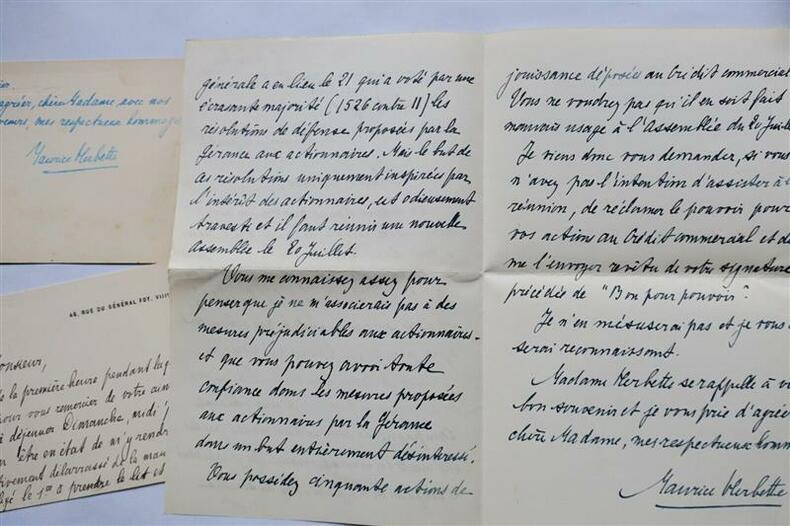 ier.
agréer, chère Madame, avec nos
mes respectueux hommages
Maurice Herbette
46, RUE DU GÉNÉRAL FOY. VIII
Monsieur,
la première heure pendant
pour vous remercier de votre
déjeuner Dimanche, midi
être en état de m'y rendre
débarrassé de la
le 1er à prendre le lit et
générale a eu lieu le 21 qui a voté par une
écrasante majorité (1526 contre 11) les
résolutions de défense proposées par la
Gérance aux actionnaires. Mais le but de
ces résolutions uniquement inspirées par
l'intérêt des actionnaires, est odieusement
travesti et il faut réunir une nouvelle
assemblée le 20 Juillet.
Vous me connaissez assez pour
penser que je ne m'associerais pas à des
mesures préjudiciables aux actionnaires
et que vous pouvez avoir toute
confiance dans les mesures proposées
aux actionnaires par la Gérance
dans un but entièrement désintéressé.
Vous possédez cinquante actions de
jouissance déposées au Crédit commercial
Vous ne voudrez pas qu'il en soit fait
mauvais usage à l'Assemblée du 20 Juillet
Je viens donc vous demander, si vous
n'avez pas l'intention d'assister à
réunion, de réclamer le pouvoir pour
vos actions au Crédit commercial et de
me l'envoyer revêtu de votre signature
précédée de "Bon pour pouvoir".
Je n'en mésuserai pas et je vous
serai reconnaissant.
Madame Herbette se rappelle à
bon souvenir et je vous prie d'agréer
chère Madame, mes respectueux
Maurice Herbette